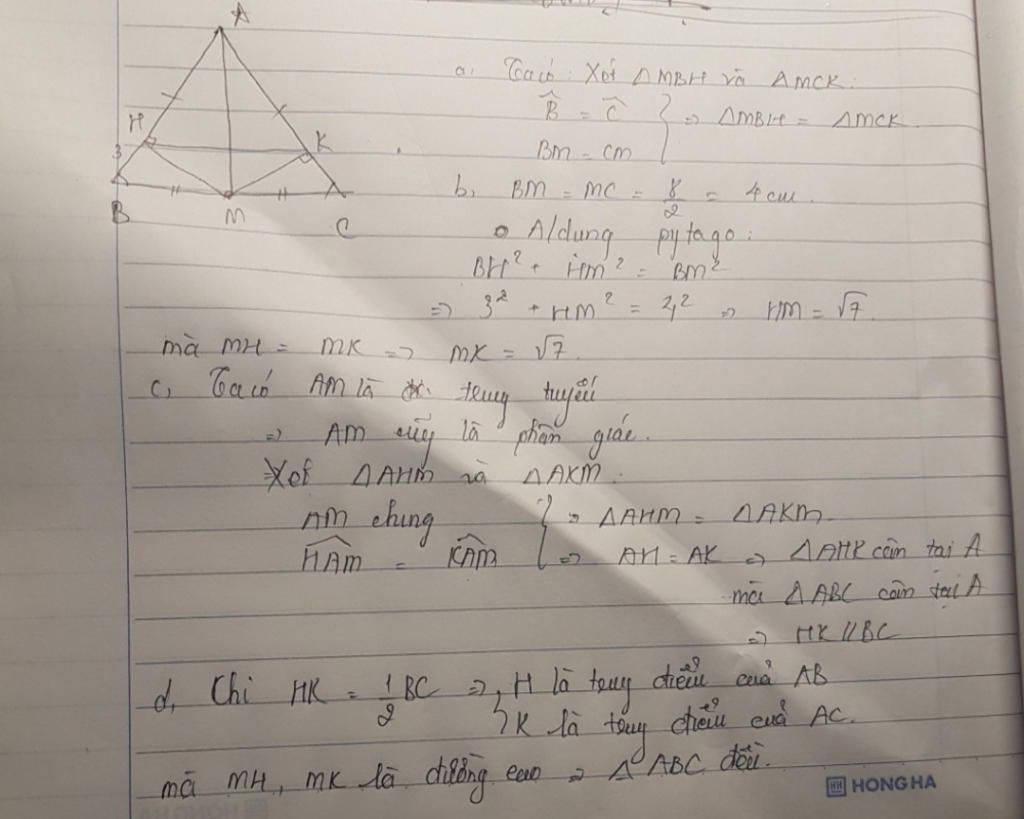 A
H
K
3
B
M
C
a, Ta có: Xét ΔMBH và ΔMCK:
B̂ = Ĉ
BM = CM
=> ΔMBH = ΔMCK
b, BM = MC = 8/2 = 4 cm.
A/dung pytago:
BH² + HM² = BM²
=> 3² + HM² = 4² => HM = √7.
mà MH = MK => MK = √7.
c, Ta có AM là trung tuyến
=> AM cũng là phân giác.
Xét ΔAHM và ΔAKM:
AM chung
=> ΔAHM = ΔAKM.
HAM = KAM
=> AH = AK => ΔAHK cân tại A
mà ΔABC cân tại A
=> HK // BC
d, Chi HK = 1/2 BC => H là trung điểm của AB
K là trung điểm của AC.
mà MH, MK là đường cao => Δ ABC đều.
HH HONG HA